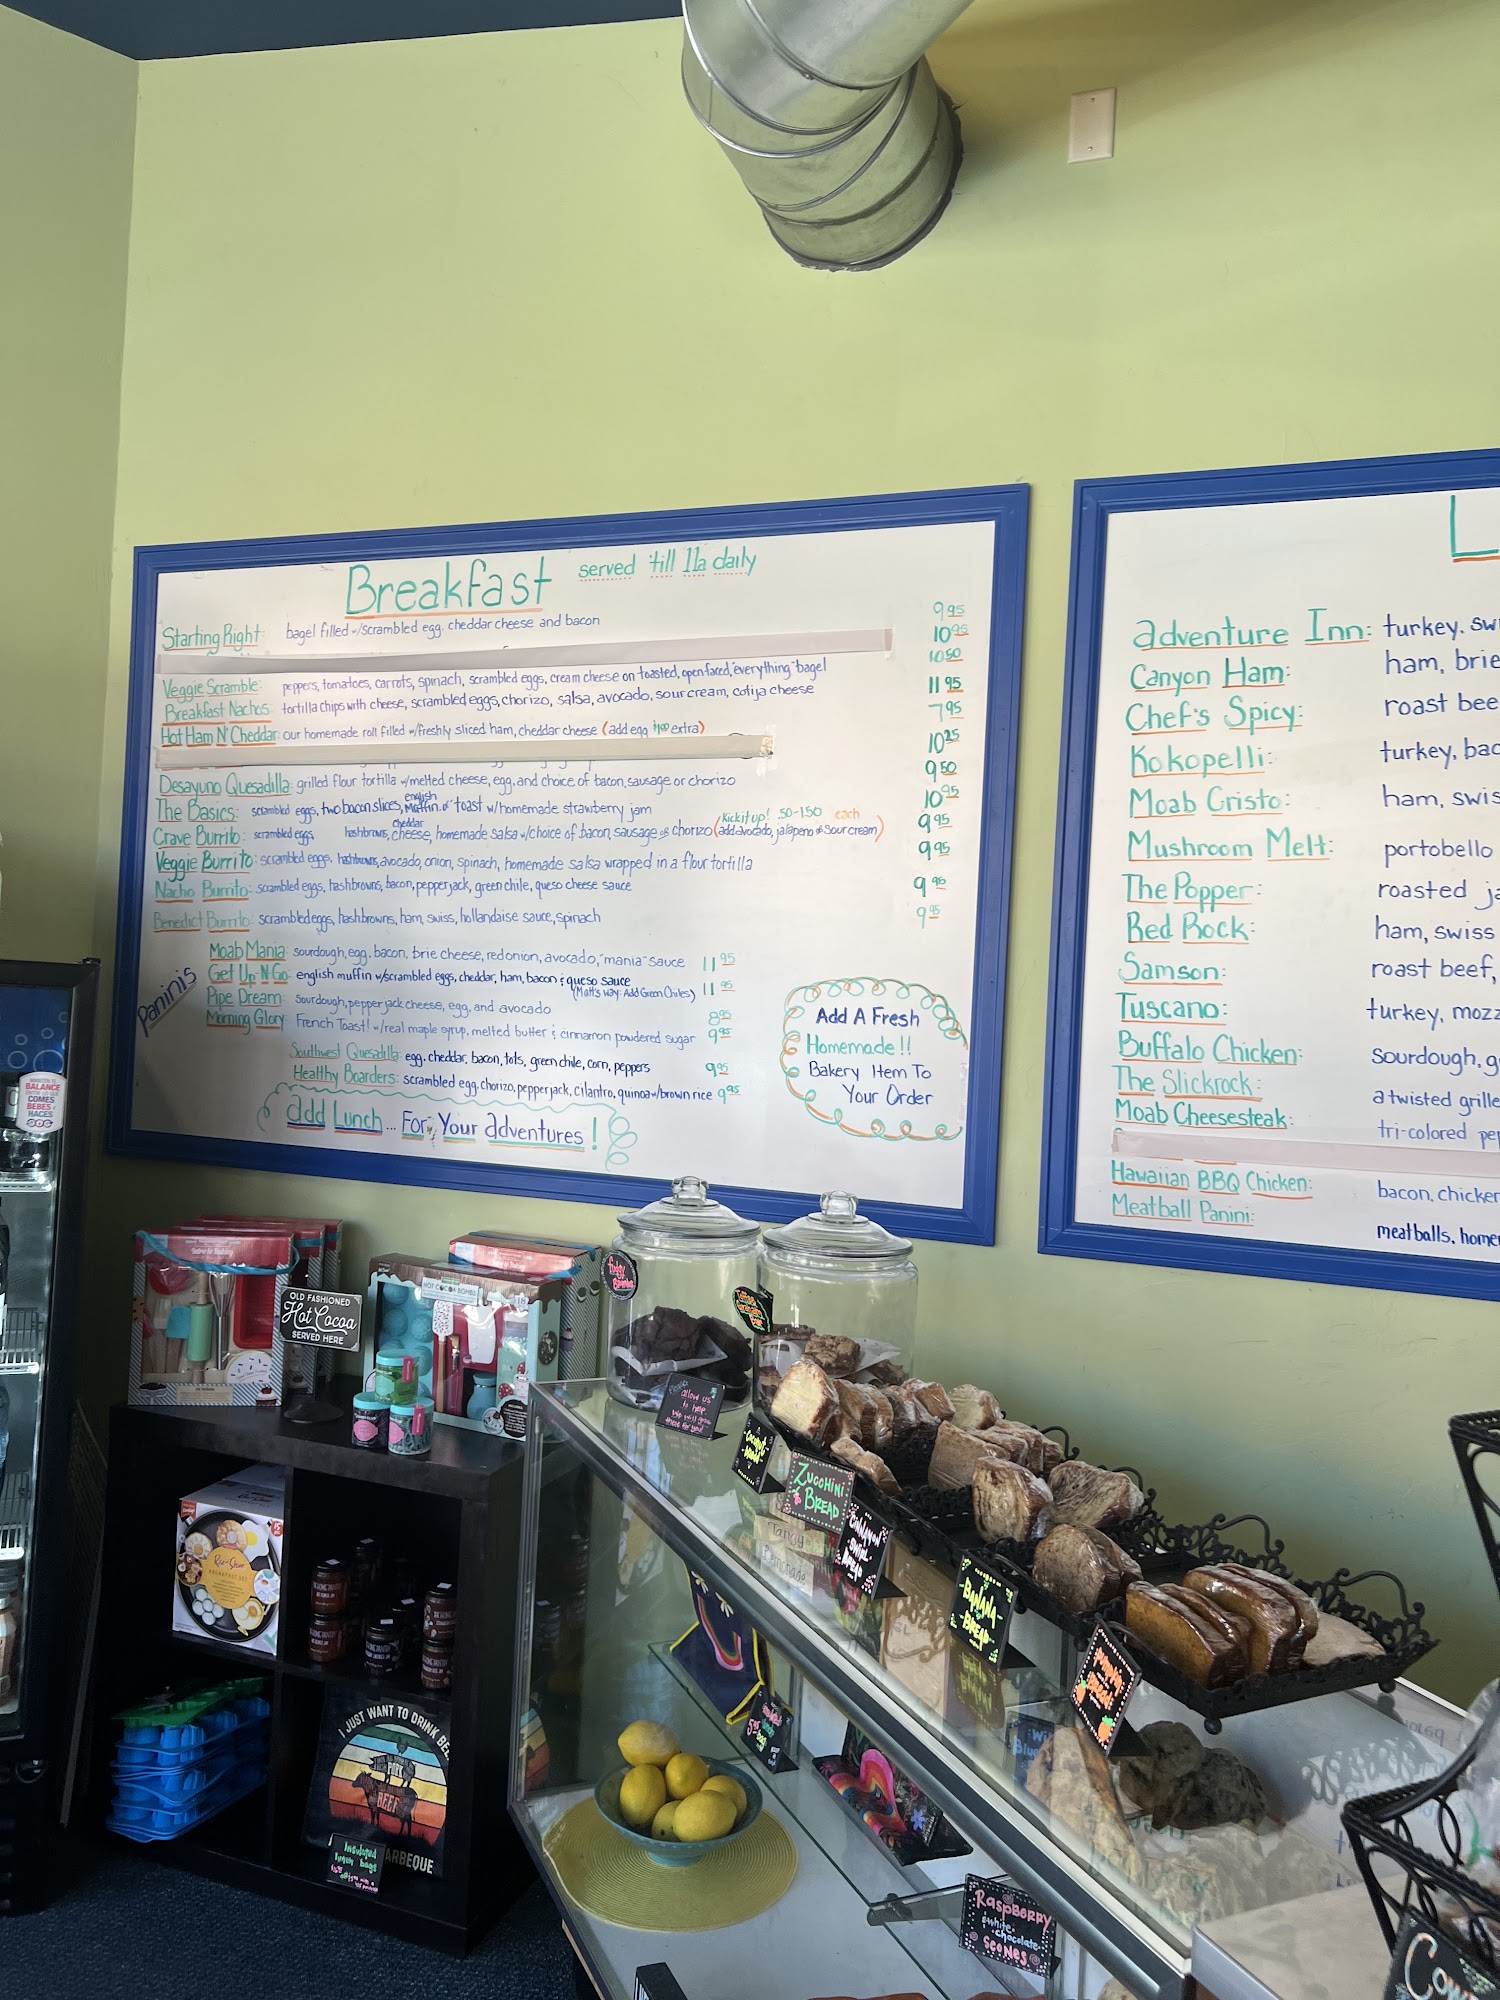 Breakfast served 'till 11a daily
Starting Right: bagel filled w/scrambled egg. cheddar cheese and bacon 9.95
10.95
Veggie Scramble: peppers, tomatoes, carrots, spinach, scrambled eggs, cream cheese on toasted, open faced, "everything" bagel 10.50
Breakfast Nachos: tortilla chips with cheese, scrambled eggs, chorizo, salsa, avocado, sour cream, cotija cheese 11.95
Hot Ham N' Cheddar: our homemade roll filled w/freshly sliced ham, cheddar cheese (add egg $1.00 extra) 7.95
10.25
Desayuno Quesadilla: grilled flour tortilla w/melted cheese, egg, and choice of bacon, sausage or chorizo 9.50
The Basics: scrambled eggs, two bacon slices, english muffin or toast w/homemade strawberry jam 10.95
Crave Burrito: scrambled eggs hashbrowns, cheddar cheese, homemade salsa w/choice of bacon, sausage or chorizo (Kick it up! .50-1.50 each add avocado, jalapeno or sour cream) 9.95
Veggie Burrito: scrambled eggs, hashbrowns, avocado, onion, spinach, homemade salsa wrapped in a flour tortilla 9.95
Nacho Burrito: scrambled eggs, hashbrowns, bacon, pepperjack, green chile, queso cheese sauce 9.95
Benedict Burrito: scrambled eggs, hashbrowns, ham, swiss, hollandaise sauce, spinach 9.95
Paninis
Moab Mania: sourdough, egg, bacon, brie cheese, red onion, avocado, "mania" sauce 11.95
Get Up-N-Go: english muffin w/scrambled eggs, cheddar, ham, bacon & queso sauce 11.95
(Matt's way: Add Green Chiles)
Pipe Dream: sourdough, pepper jack cheese, egg, and avocado 8.95
Morning Glory: French Toast! w/real maple syrup, melted butter & cinnamon powdered sugar 9.95
Southwest Quesadilla: egg. cheddar, bacon, tots, green chile, corn, peppers 9.95
Healthy Boarders: scrambled egg, chorizo, pepperjack, cilantro, quinoa w/brown rice 9.95
Add Lunch... For Your Adventures!
Add A Fresh
Homemade!!
Bakery Item To
Your Order
L
Adventure Inn: turkey. sw
Canyon Ham: ham, brie
Chef's Spicy: roast bee
Kokopelli: turkey, bac
Moab Cristo: ham, swis
Mushroom Melt: portobello
The Popper: roasted ja
Red Rock: ham, swiss
Samson: roast beef,
Tuscano: turkey, mozz
Buffalo Chicken: sourdough, g
The Slickrock: a twisted grille
Moab Cheesesteak: tri-colored pep
Hawaiian BBQ Chicken: bacon, chicken
Meatball Panini: meatballs, home
BALANCE
COMES
BEBES Y
HACES
OLD FASHIONED
Hot Cocoa
SERVED HERE
HOT COCOA BOMBS
Fudgy
Brownies
Please
allow us
to help
We will grab
these for you!
Coconut
Bread
Zucchini
Bread
Cinnamon
Swirl
Bread
Banana
Bread
Pumpkin
Bread
Tangy
Lemonade
Rise & Shine
BREAKFAST SET
I JUST WANT TO DRINK BEE
PORK
BEEF
ARBEQUE
Insulated
lunch bags
Raspberry
& white
chocolate
Scones